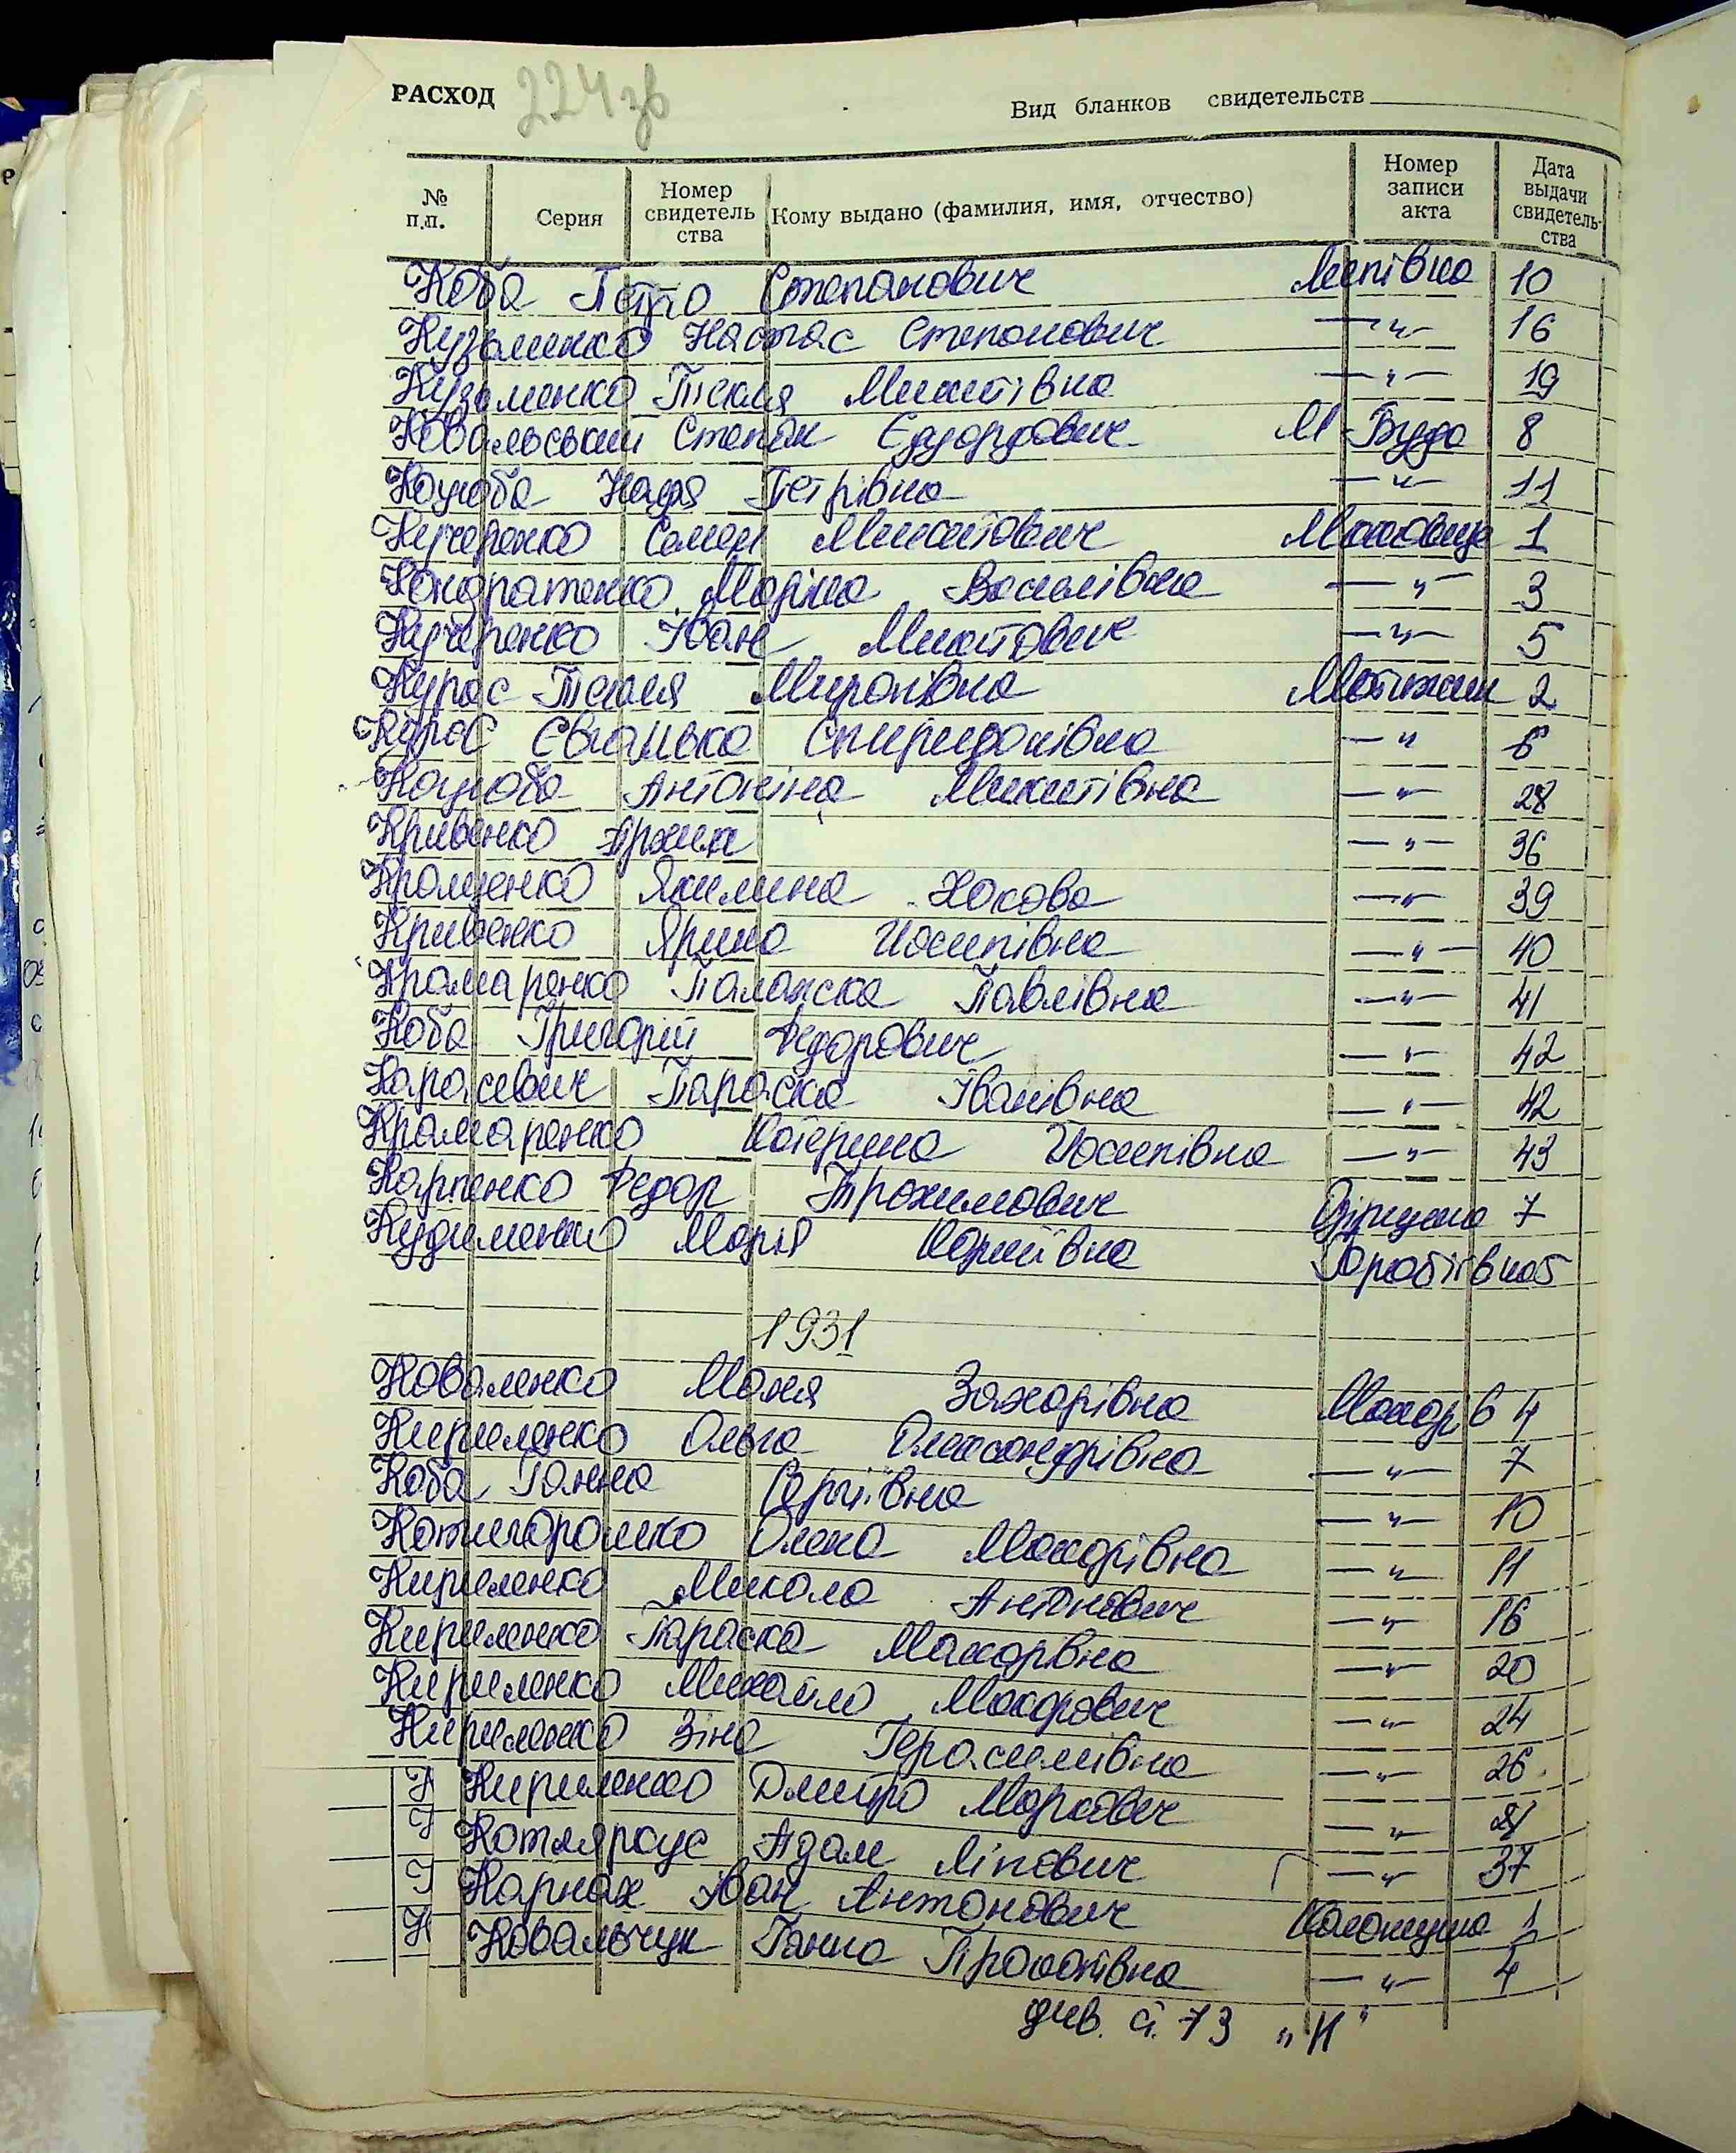 РАСХОД 224зв
Вид бланков свидетельств
№ п.п. Серия Номер свидетель ства Кому выдано (фамилия, имя, отчество) Номер записи акта Дата выдачи свидетель- ства
Коба Петро Степанович Липівка 10
Кузьменко Настас Степанович —"— 16
Кузьменко Текля Микитівна —"— 19
Ковальський Степан Едуардович М Буда 8
Коцюба Надя Петрівна —"— 11
Кучеренко Семен Микитович Маковище 1
Кондратенко Маріна Василівна —"— 3
Кучеренко Іван Микитович —"— 5
Курас Текля Миронівна Мотижин 2
Курас Євганька Спиридонівна —"— 6
Коцюба Антоніна Микитівна —"— 28
Кривенко —"— 36
Якилина —"— 39
Кривенко Ярина Йосипівна —"— 40
Крамаренко Палажка Павлівна —"— 41
Коба Григорій Федорович —"— 42
Карасевич Параска Іванівна —"— 42
Крамаренко Катерина Йосипівна —"— 43
Карпенко Федор Трохимович 7
Кудименко Марія Юрківна 5
1931
Коваленко Маня Захарівна Макарів 4
Кириленко Ольга Олександрівна —"— 7
Коба Ганна Сергіївна —"— 10
Котигорошко Олена Макарівна —"— 11
Кириленко Микола Антонович —"— 16
Кириленко Параска Макарівна —"— 20
Кириленко Михайло Макарович —"— 24
Кириленко Зіна Герасимівна —"— 26
Кириленко Дмитро Маркович —"—
Котлярчус Адам Ліпович —"— 37
Карнах Іван Антонович Колонщина 1
Ковальчук Ганна Прокопівна —"— 4
див. а. 73 "К"